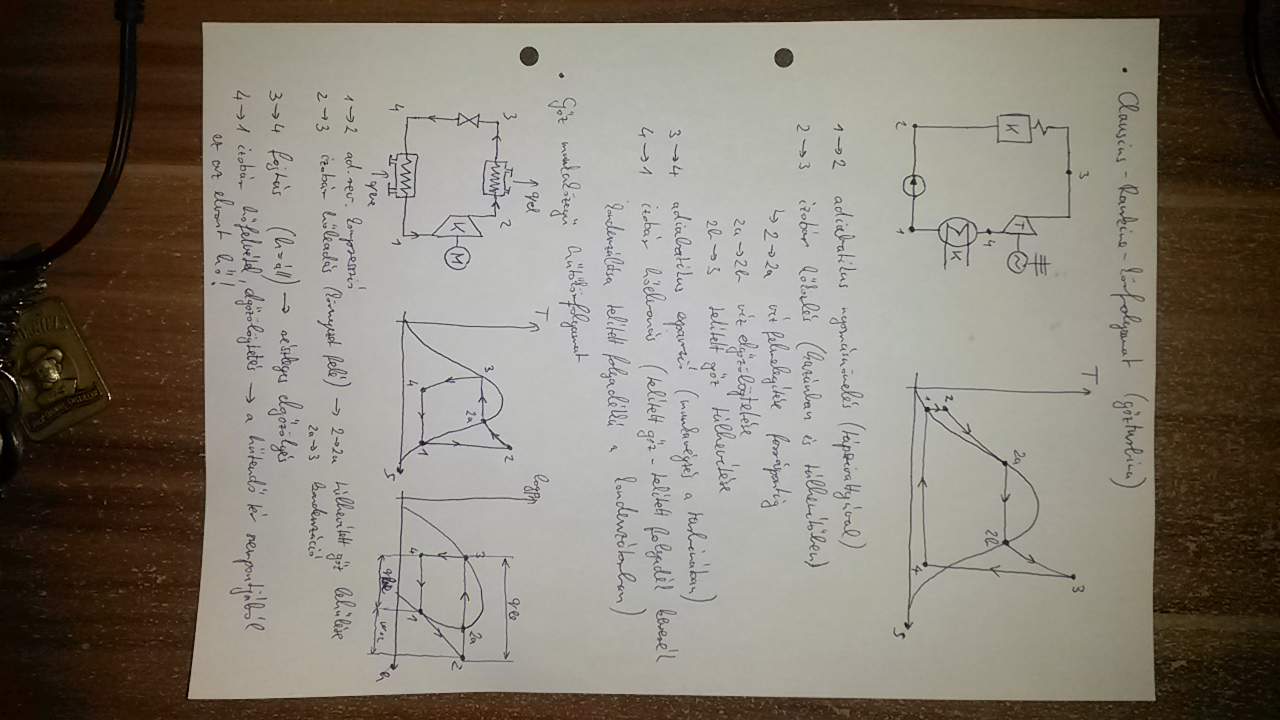 • Clausius - Rankine - körfolyamat (gőzturbina)
K
3
2
T
4
1
K
T
2
1
2a
2b
3
4
S
1→2 adiabatikus nyomásnövelés (tápszivattyúval)
2→3 izobár hőközlés (kazánban és túlhevítőben)
↳ 2→2a víz felmelegítése forráspontig
2a→2b víz elgőzölögtetése
2b→3 telített gőz túlhevítése
3→4 adiabatikus expanzió (munkavégzés a turbinában)
4→1 izobár hőelvonás (telített gőz - telített folyadék keverék
kondenzálása telített folyadékká a kondenzátorban)
• Gőz munkaközegű hűtőkörfolyamat
3
2
4
1
K
M
T
3
2a
2
4
1
S
logp
3
2a
2
4
1
h
1→2 ad. rev. kompresszió
2→3 izobár hőleadás (környezet felé) → 2→2a túlhevített gőz lehűlése
2a→3 kondenzáció
3→4 fojtás (h=áll) → részleges elgőzölgés
4→1 izobár hőfelvétel, elgőzölögtetés → a hűtendő tér szempontjából
ez az elvont hő!